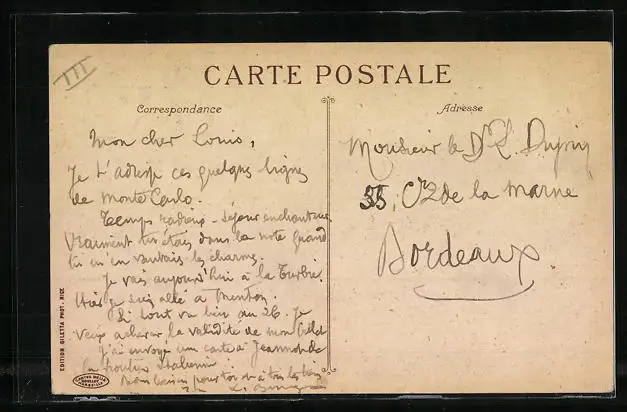 III
CARTE POSTALE
Correspondance
Mon cher Louis,
Je t'adresse ces quelques lignes
de Monte Carlo.
Temps radieux - Séjour enchanteur
Vraiment tu étais dans la note quand
tu m'en vantais les charmes.
Je vais aujourd'hui à la Turbie.
Hier je suis allé à Menton.
Si tout va bien au 26. Je
veux achever la validité de mon billet
J'ai envoyé une carte à Jeanne de
la frontière Italienne
Mon baiser pour toi et à tous les
Adresse
Monsieur le Dr L.
55, Crs de la Marne
Bordeaux.
EDITION GILETTA PHOT - NICE